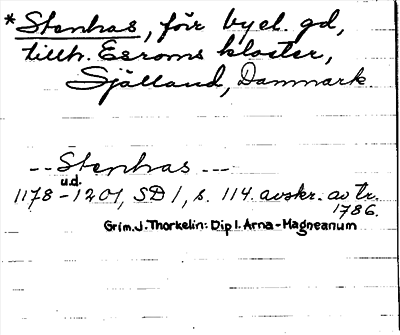 *Stenhas, förr by el. gd,
tillh. Esroms kloster,
Själland, Danmark.
-- Stenhas ---
u.d.
1178-1201, SD 1, s. 114. avskr. av tr.
1786.
Grim. J. Thorkelin: Dipl. Arna-Magneanum